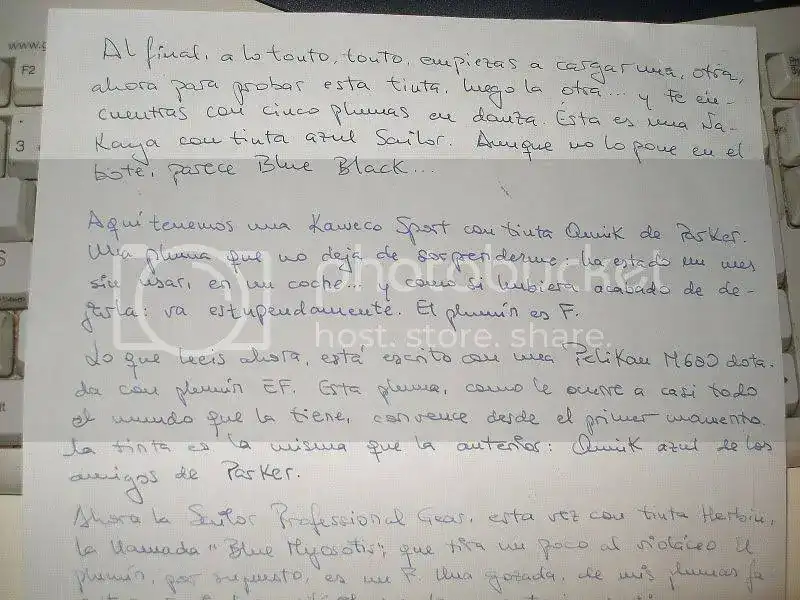 Al final, a lo tonto, tonto, empiezas a cargar una, otra,
ahora para probar esta tinta, luego la otra... y te en-
cuentras con cinco plumas en danza. Ésta es una Na-
kaya con tinta azul Sailor. Aunque no lo pone en el
bote, parece Blue Black...
Aquí tenemos una Kaweco Sport con tinta Quink de Parker.
Una pluma que no deja de sorprenderme: ha estado un mes
sin usar, en un coche... y como si hubiera acabado de de-
jarla: va estupendamente. El plumín es F.
Lo que leéis ahora, está escrito con una Pelikan M600 dota-
da con plumín EF. Esta pluma, como le ocurre a casi todo
el mundo que la tiene, convence desde el primer momento.
La tinta es la misma que la anterior: Quink azul de los
amigos de Parker.
Ahora la Sailor Professional Gear, esta vez con tinta Herbin,
la llamada "Blue Myosotis", que tira un poco al violáceo. El
plumín, por supuesto, es un F. Una gozada, de mis plumas fa
photobucket
host. store. share.
www.g
F2
3
S